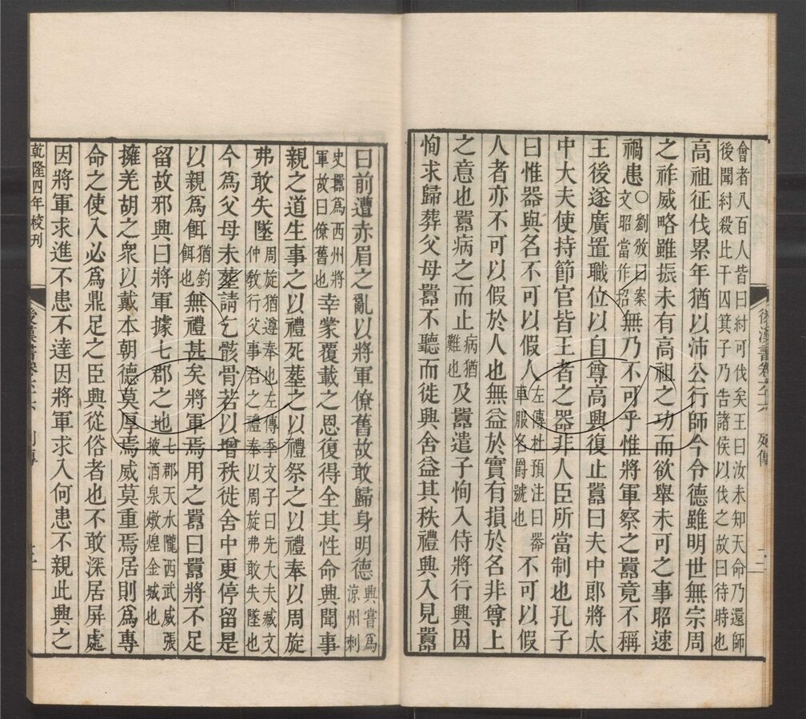 會者八百人皆曰紂可伐矣王曰汝未知天命乃還師
後聞紂殺比干囚箕子乃告諸侯以伐之故曰待時也
高祖征伐累年猶以沛公行師今令德雖明世無宗周
之祚威略雖振未有高祖之功而欲舉未可之事昭速
禍患○劉攽曰案文昭當作招無乃不可乎惟將軍察之囂竟不稱
王後遂廣置職位以自尊高興復止囂曰夫中郎將太
中大夫使持節官皆王者之器非人臣所當制也孔子
曰惟器與名不可以假人左傳杜預注曰器車服名爵號也不可以假
人者亦不可以假於人也無益於實有損於名非尊上
之意也囂病之而止病猶難也及囂遣子恂入侍將行興因
恂求歸葬父母囂不聽而徙興舍益其秩禮興入見囂
後漢書卷六十六
列傳
曰前遭赤眉之亂以將軍僚舊故敢歸身明德興嘗爲涼州刺
史囂爲西州將軍故曰僚舊也幸蒙覆載之恩復得全其性命興聞事
親之道生事之以禮死葬之以禮祭之以禮奉以周旋
弗敢失墜周旋猶遵奉也左傳季文子曰先大夫臧文仲敎行父事君之禮奉以周旋弗敢失墜也
今爲父母未葬請乞骸骨若以增秩徙舍中更停留是
以親爲餌猶釣餌也無禮甚矣將軍焉用之囂曰囂將不足
留故邪興曰將軍據七郡之地七郡天水隴西武威張掖酒泉燉煌金城也
擁羌胡之衆以戴本朝德莫厚焉威莫重焉居則爲專
命之使入必爲鼎足之臣興從俗者也不敢深居屏處
因將軍求進不患不達因將軍求入何患不親此興之
乾隆四年校刊
後漢書卷六十六
列傳